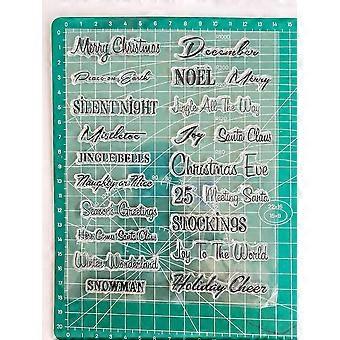 Merry Christmas
December
Peace on Earth
NOEL
Merry
SILENT NIGHT
Jingle All The Way
Mistletoe
Joy
Santa Claus
JINGLE BELLS
Christmas Eve
Naughty or Nice
25
Meeting Santa
Season's Greetings
STOCKINGS
Here Comes Santa Claus
Joy To The World
Winter Wonderland
SNOWMAN
Holiday Cheer